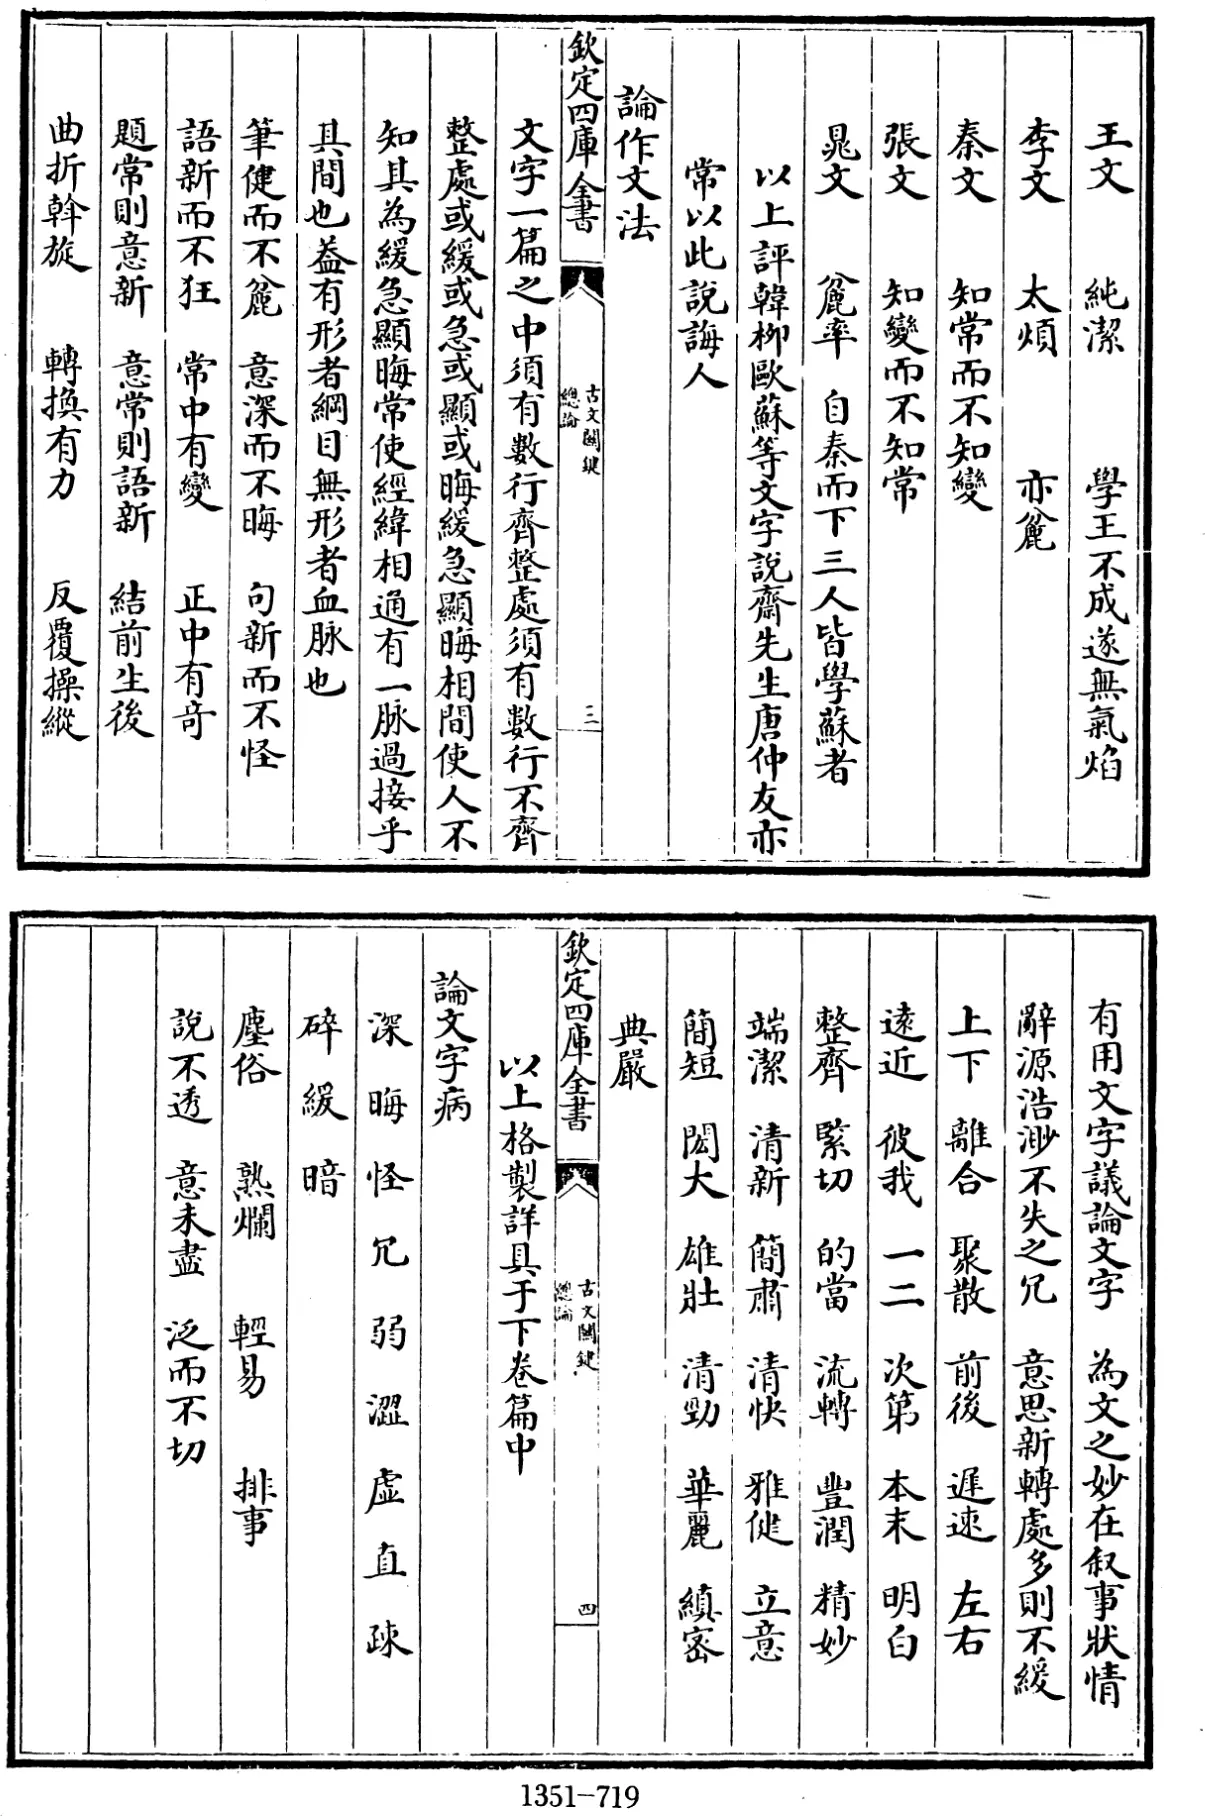 王文 純潔 學王不成遂無氣焰
李文 太煩 亦麄
秦文 知常而不知變
張文 知變而不知常
晁文 麄率 自秦而下三人皆學蘇者
以上評韓柳歐蘇等文字說齋先生唐仲友亦
常以此說誨人
論作文法
欽定四庫全書
古文關鍵
總論
三
文字一篇之中須有數行齊整處須有數行不齊
整處或緩或急或顯或晦緩急顯晦相間使人不
知其為緩急顯晦常使經緯相通有一脉過接乎
其間也葢有形者綱目無形者血脉也
筆健而不麄 意深而不晦 句新而不怪
語新而不狂 常中有變 正中有奇
題常則意新 意常則語新 結前生後
曲折斡旋 轉換有力 反覆操縱
有用文字議論文字 為文之妙在叙事狀情
辭源浩渺不失之冗 意思新轉處多則不緩
上下 離合 聚散 前後 遲速 左右
遠近 彼我 一二 次第 本末 明白
整齊 緊切 的當 流轉 豐潤 精妙
端潔 清新 簡肅 清快 雅健 立意
簡短 閎大 雄壯 清勁 華麗 縝密
典嚴
欽定四庫全書
古文關鍵
總論
四
以上格製詳具于下卷篇中
論文字病
深 晦 怪 冗 弱 澀 虛 直 疎
碎 緩 暗
塵俗 熟爛 輕易 排事
說不透 意未盡 泛而不切
1351-719